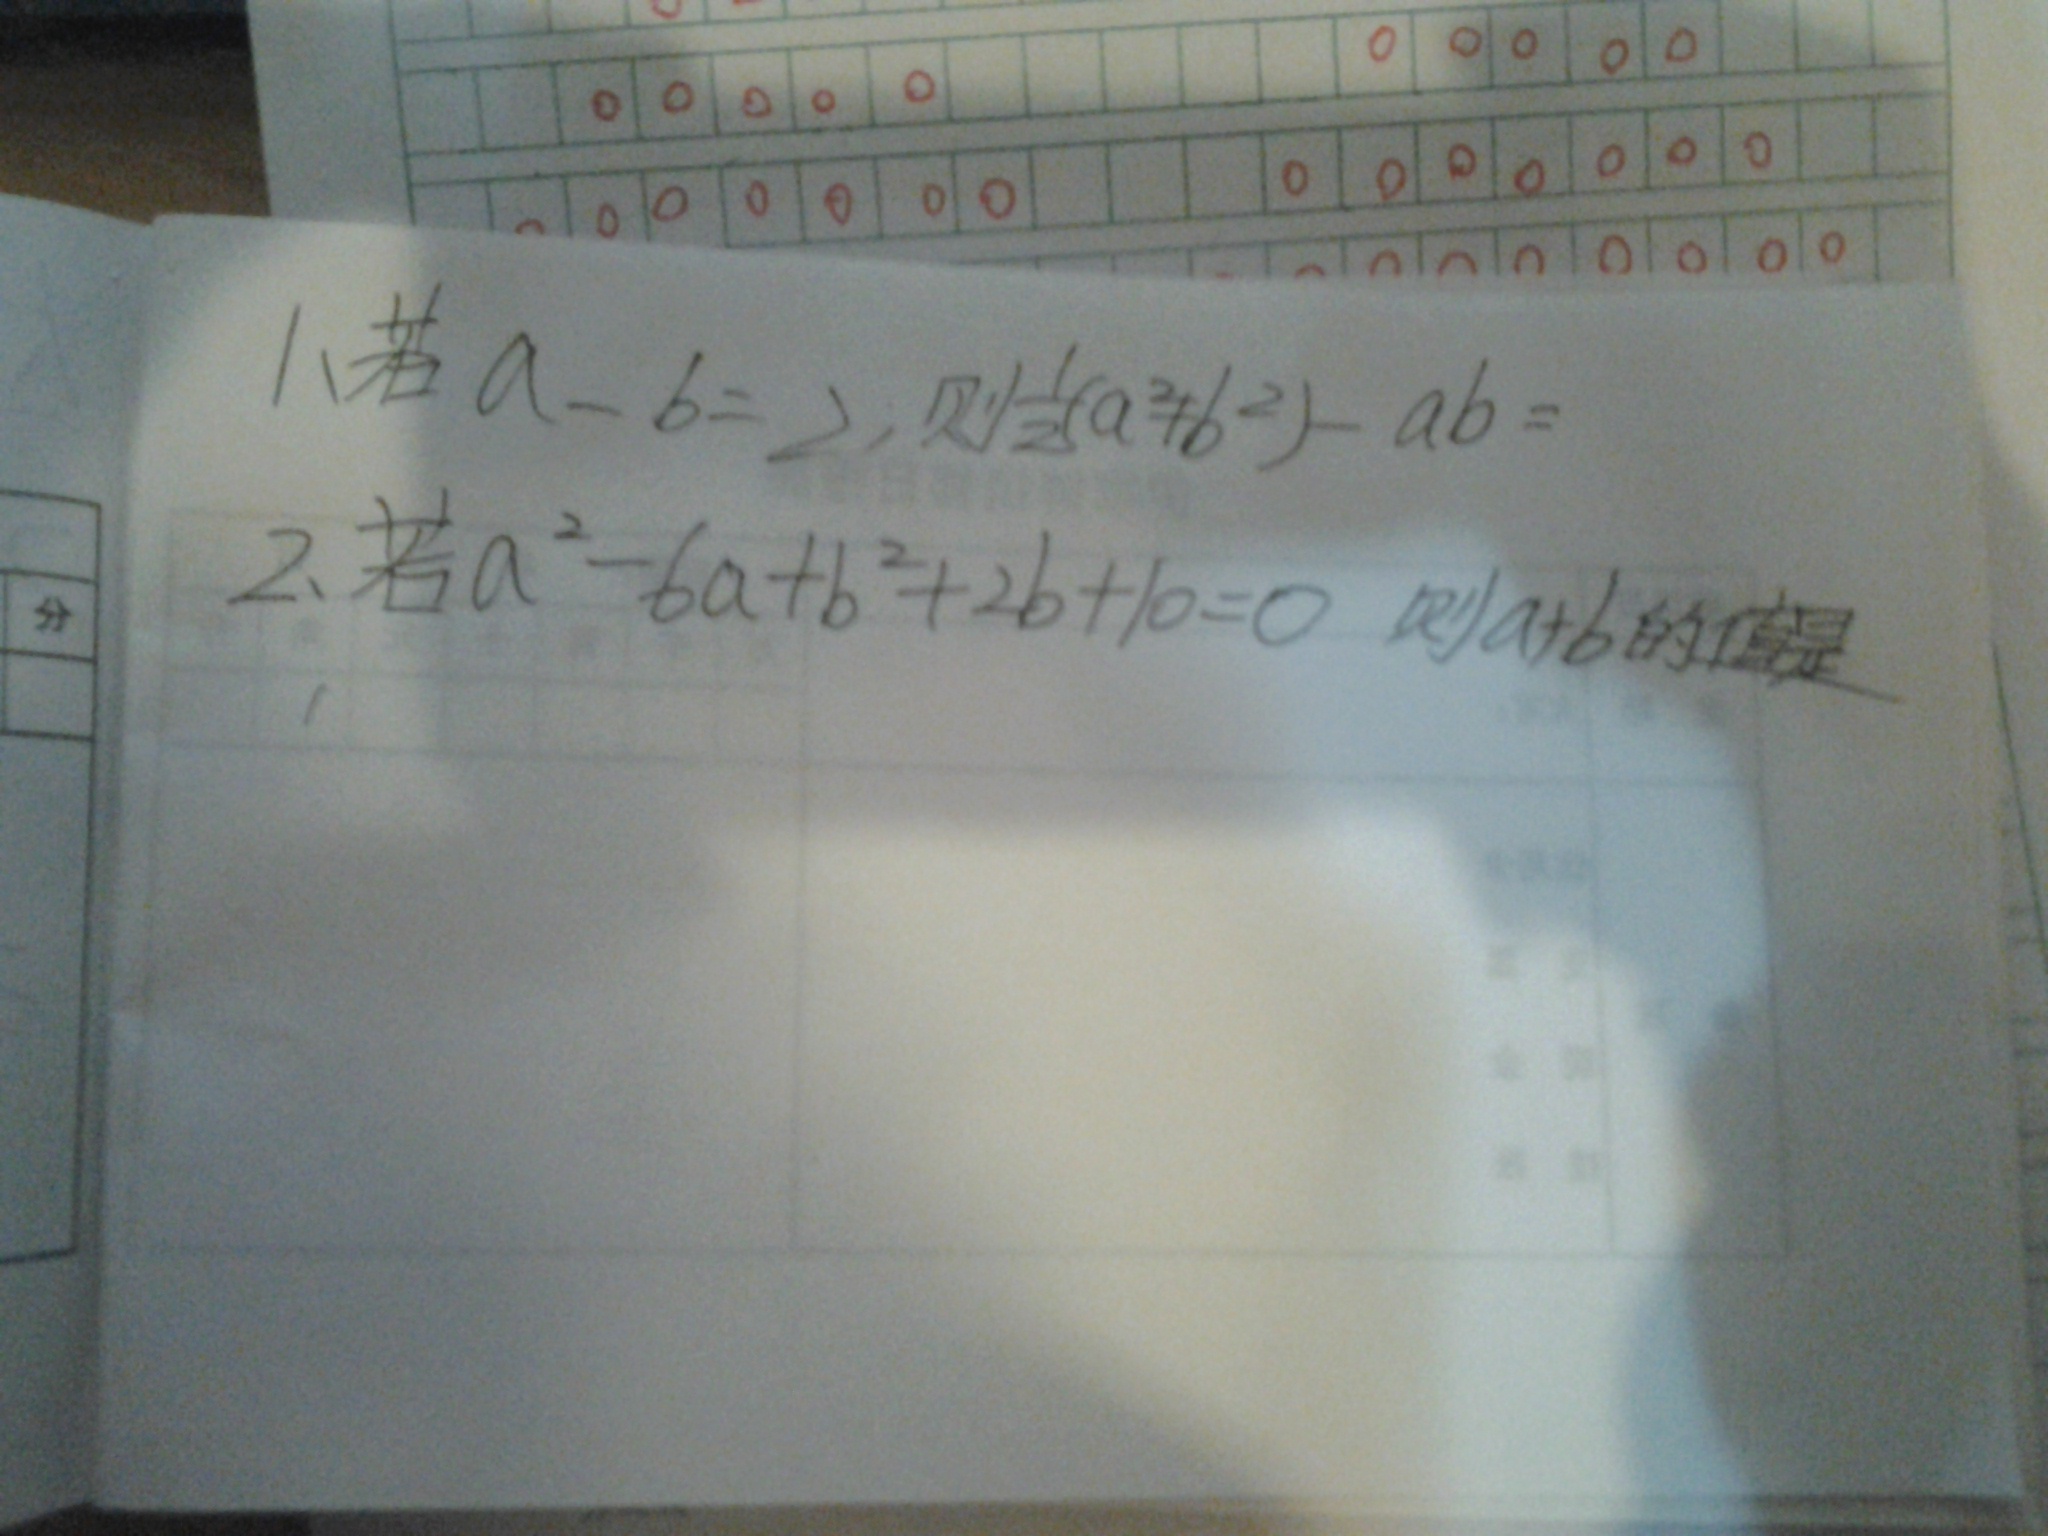 分
1、若a-b=2,则½(a²+b²)-ab=
2、若a²-6a+b²+2b+10=0 则a+b的值是